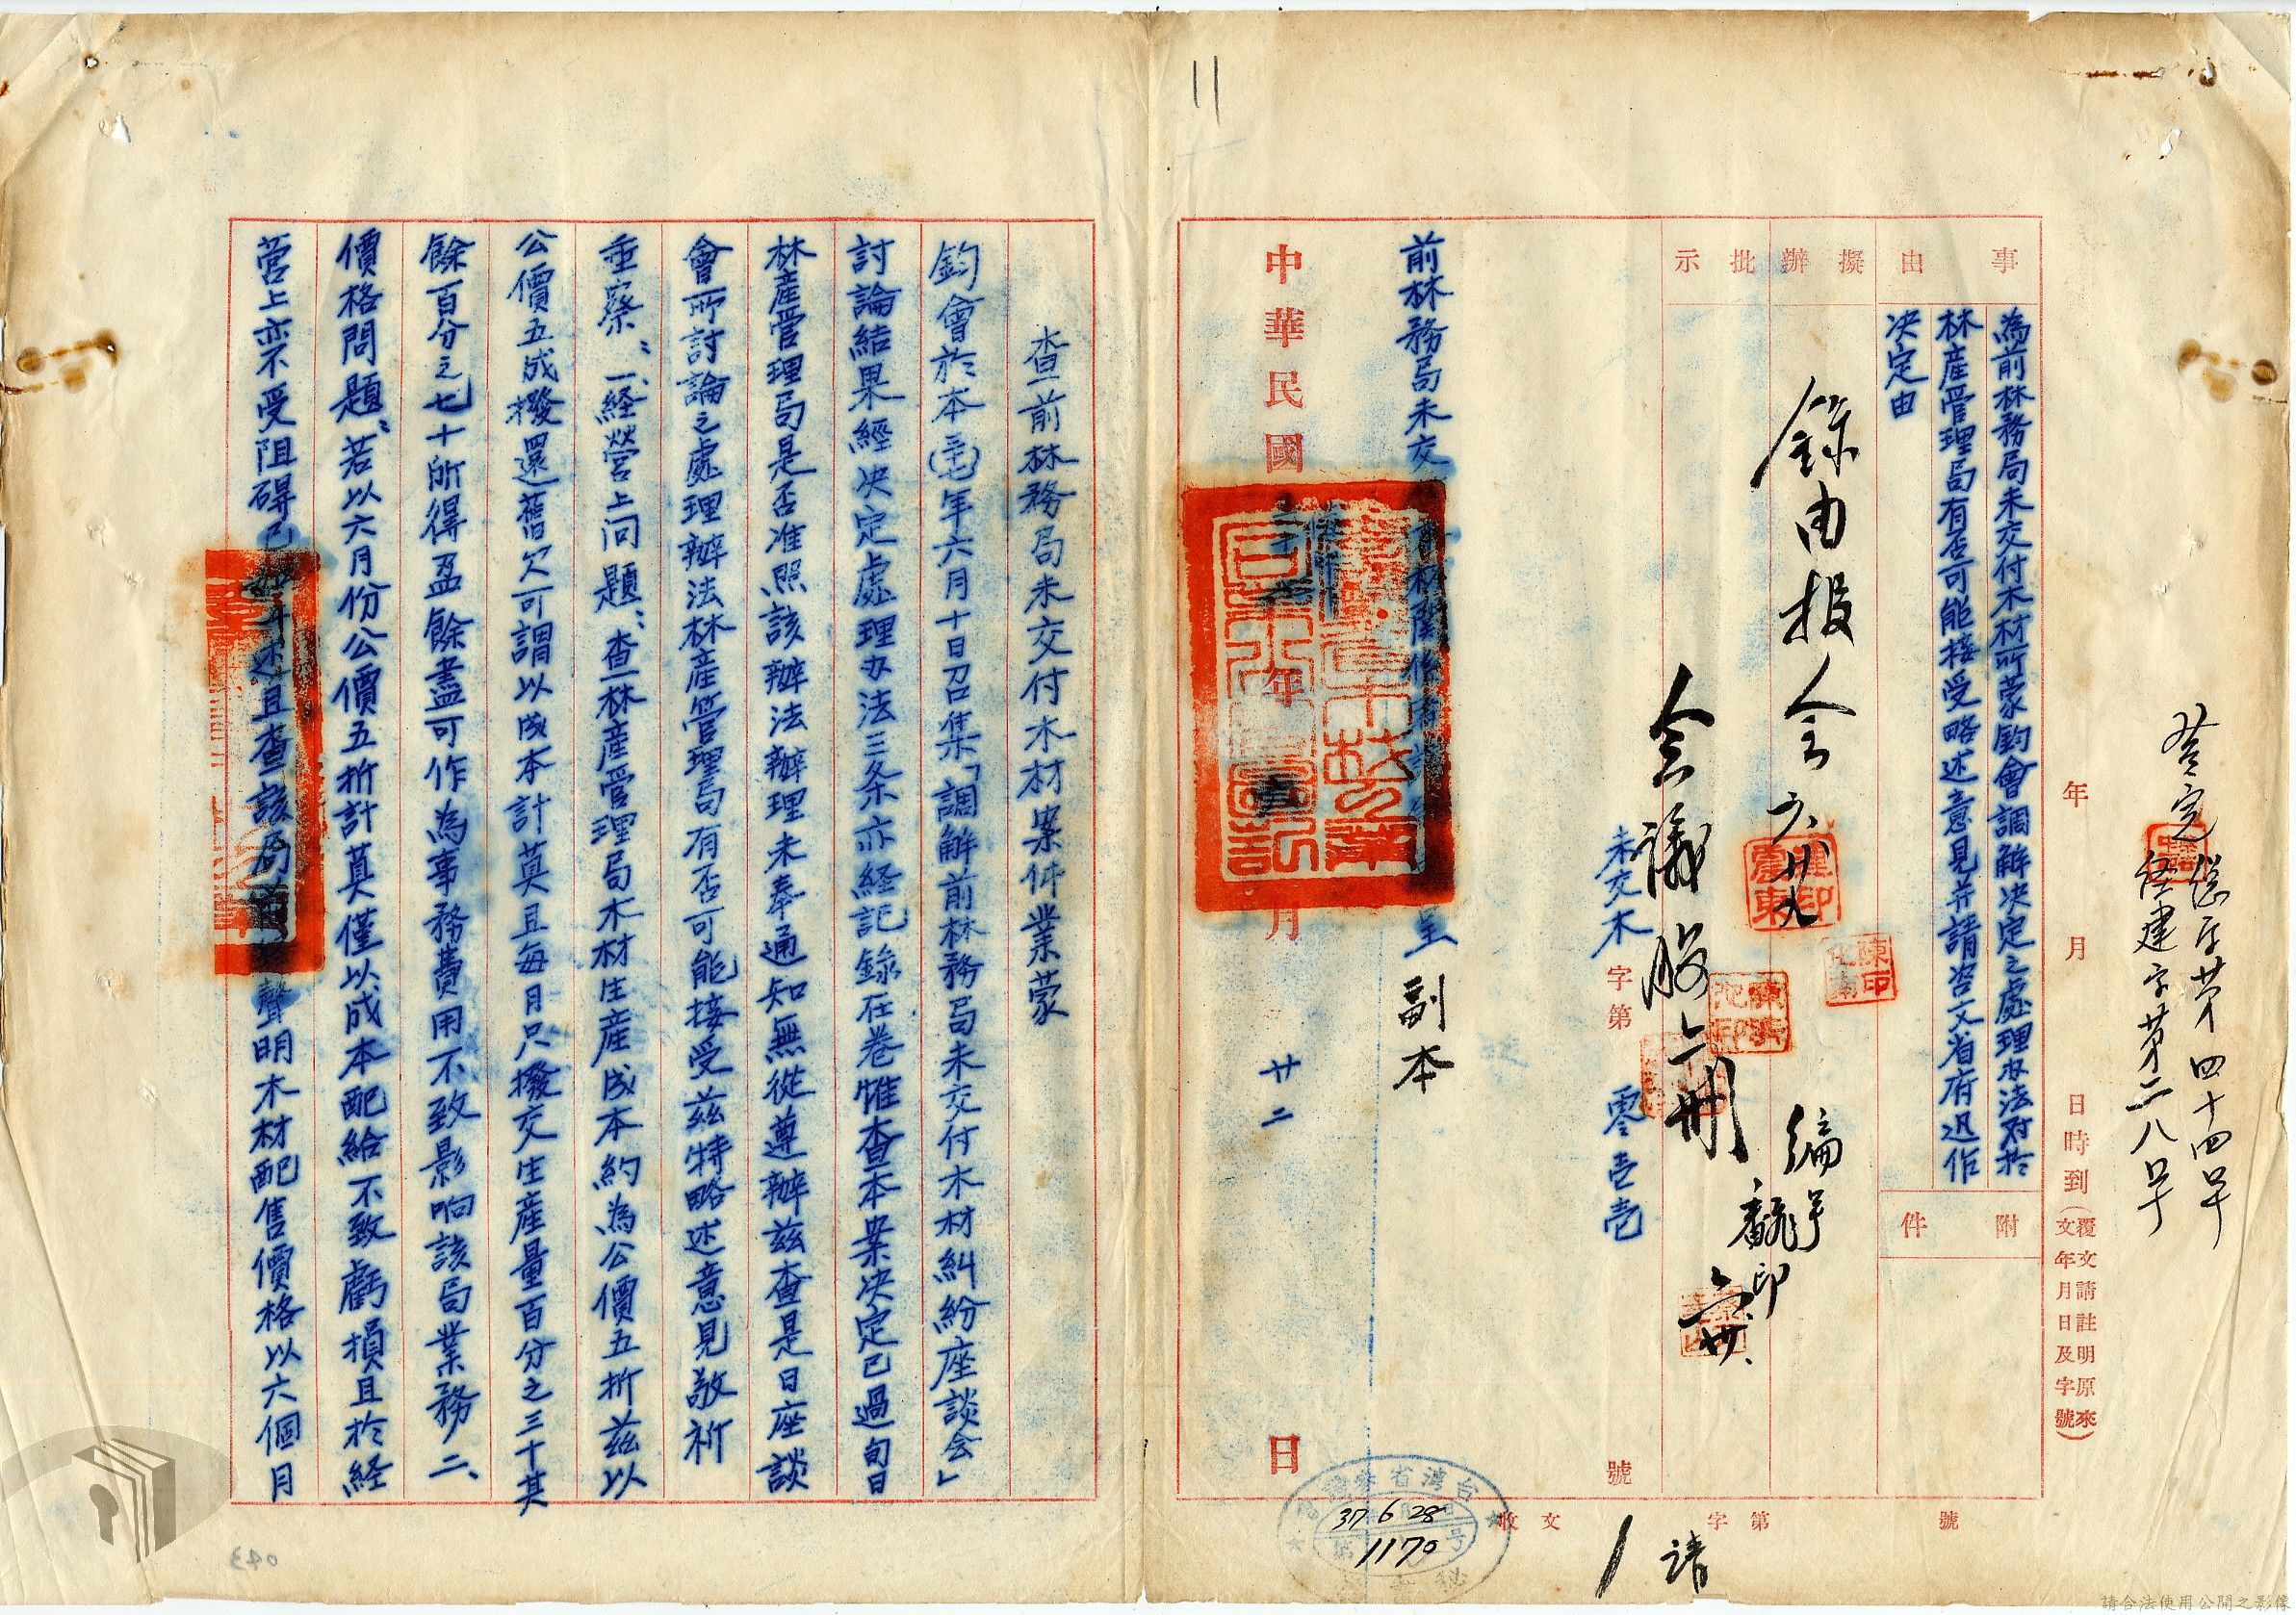 參完 總字第四十四号
經建字第二八号
年 月 日時到(覆文請註明原來文年月日及字號)
事由
為前林務局未交付木材所蒙鈞會調解決定之處理办法对於
林產管理局有否可能接受略述意見并請咨文省府迅作
決定由
附件
擬辦
錄由报会 六、廿九
編号
翻印
批示
会議股 六冊
六卅、
未交木字第零壹壹號
前林務局未交
呈
副本
中華民國 年 月 廿二 日
收文 字第 號
37 6 28
1170
1 请
11
查前林務局未交付木材案件業蒙
鈞會於本(卅七)年六月十日召集「調解前林務局未交付木材糾紛座談会」
討論結果經決定處理办法三条亦経記錄在卷惟查本案決定已過旬日
林產管理局是否准照該辦法辦理未奉通知無從遵辦兹查是日座談
會所討論之處理辦法林產管理局有否可能接受兹特略述意見敬祈
垂察：一、経營上问題：查林產管理局木材生產成本約為公價五折兹以
公價五成撥還舊欠可謂以成本計莫且每月尺撥交生產量百分之三十其
餘百分之七十所得盈餘盡可作為事務費用不致影响該局業務二、
價格問題：若以六月份公價五折計莫僅以成本配給不致虧損且於経
营上亦不受阻碍已如上述且查該局前聲明木材配售價格以六個月
043
請合法使用公開之影像